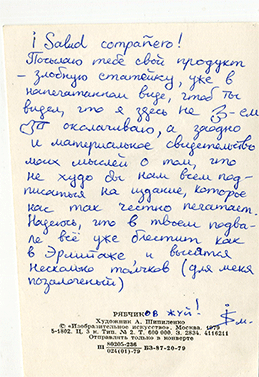 ¡ Salud compañero!
Посылаю тебе свой продукт
– злобную статейку, уже в
напечатанном виде, чтоб ты
видел, что я здесь не
околачиваю, а заодно
и материальное свидетельство
моих мыслей о том, что
не худо бы нам всем под-
писаться на издание, которое
нас так честно печатает.
Надеюсь, что в твоем подва-
ле всё уже блестит как
в Эрмитаже, и высятся
несколько толчков (для меня
позолоченый)
жуй!
РЯБЧИКОВ
Художник А. Шипиленко
© «Изобразительное искусство». Москва. 1979
5-1802. Ц. 3 к. Тип. № 2. Т. 600 000. З. 2834. 4116211
Отправлять только в конверте
Ш 80205-236
024(01)-79 БЗ-87-20-79